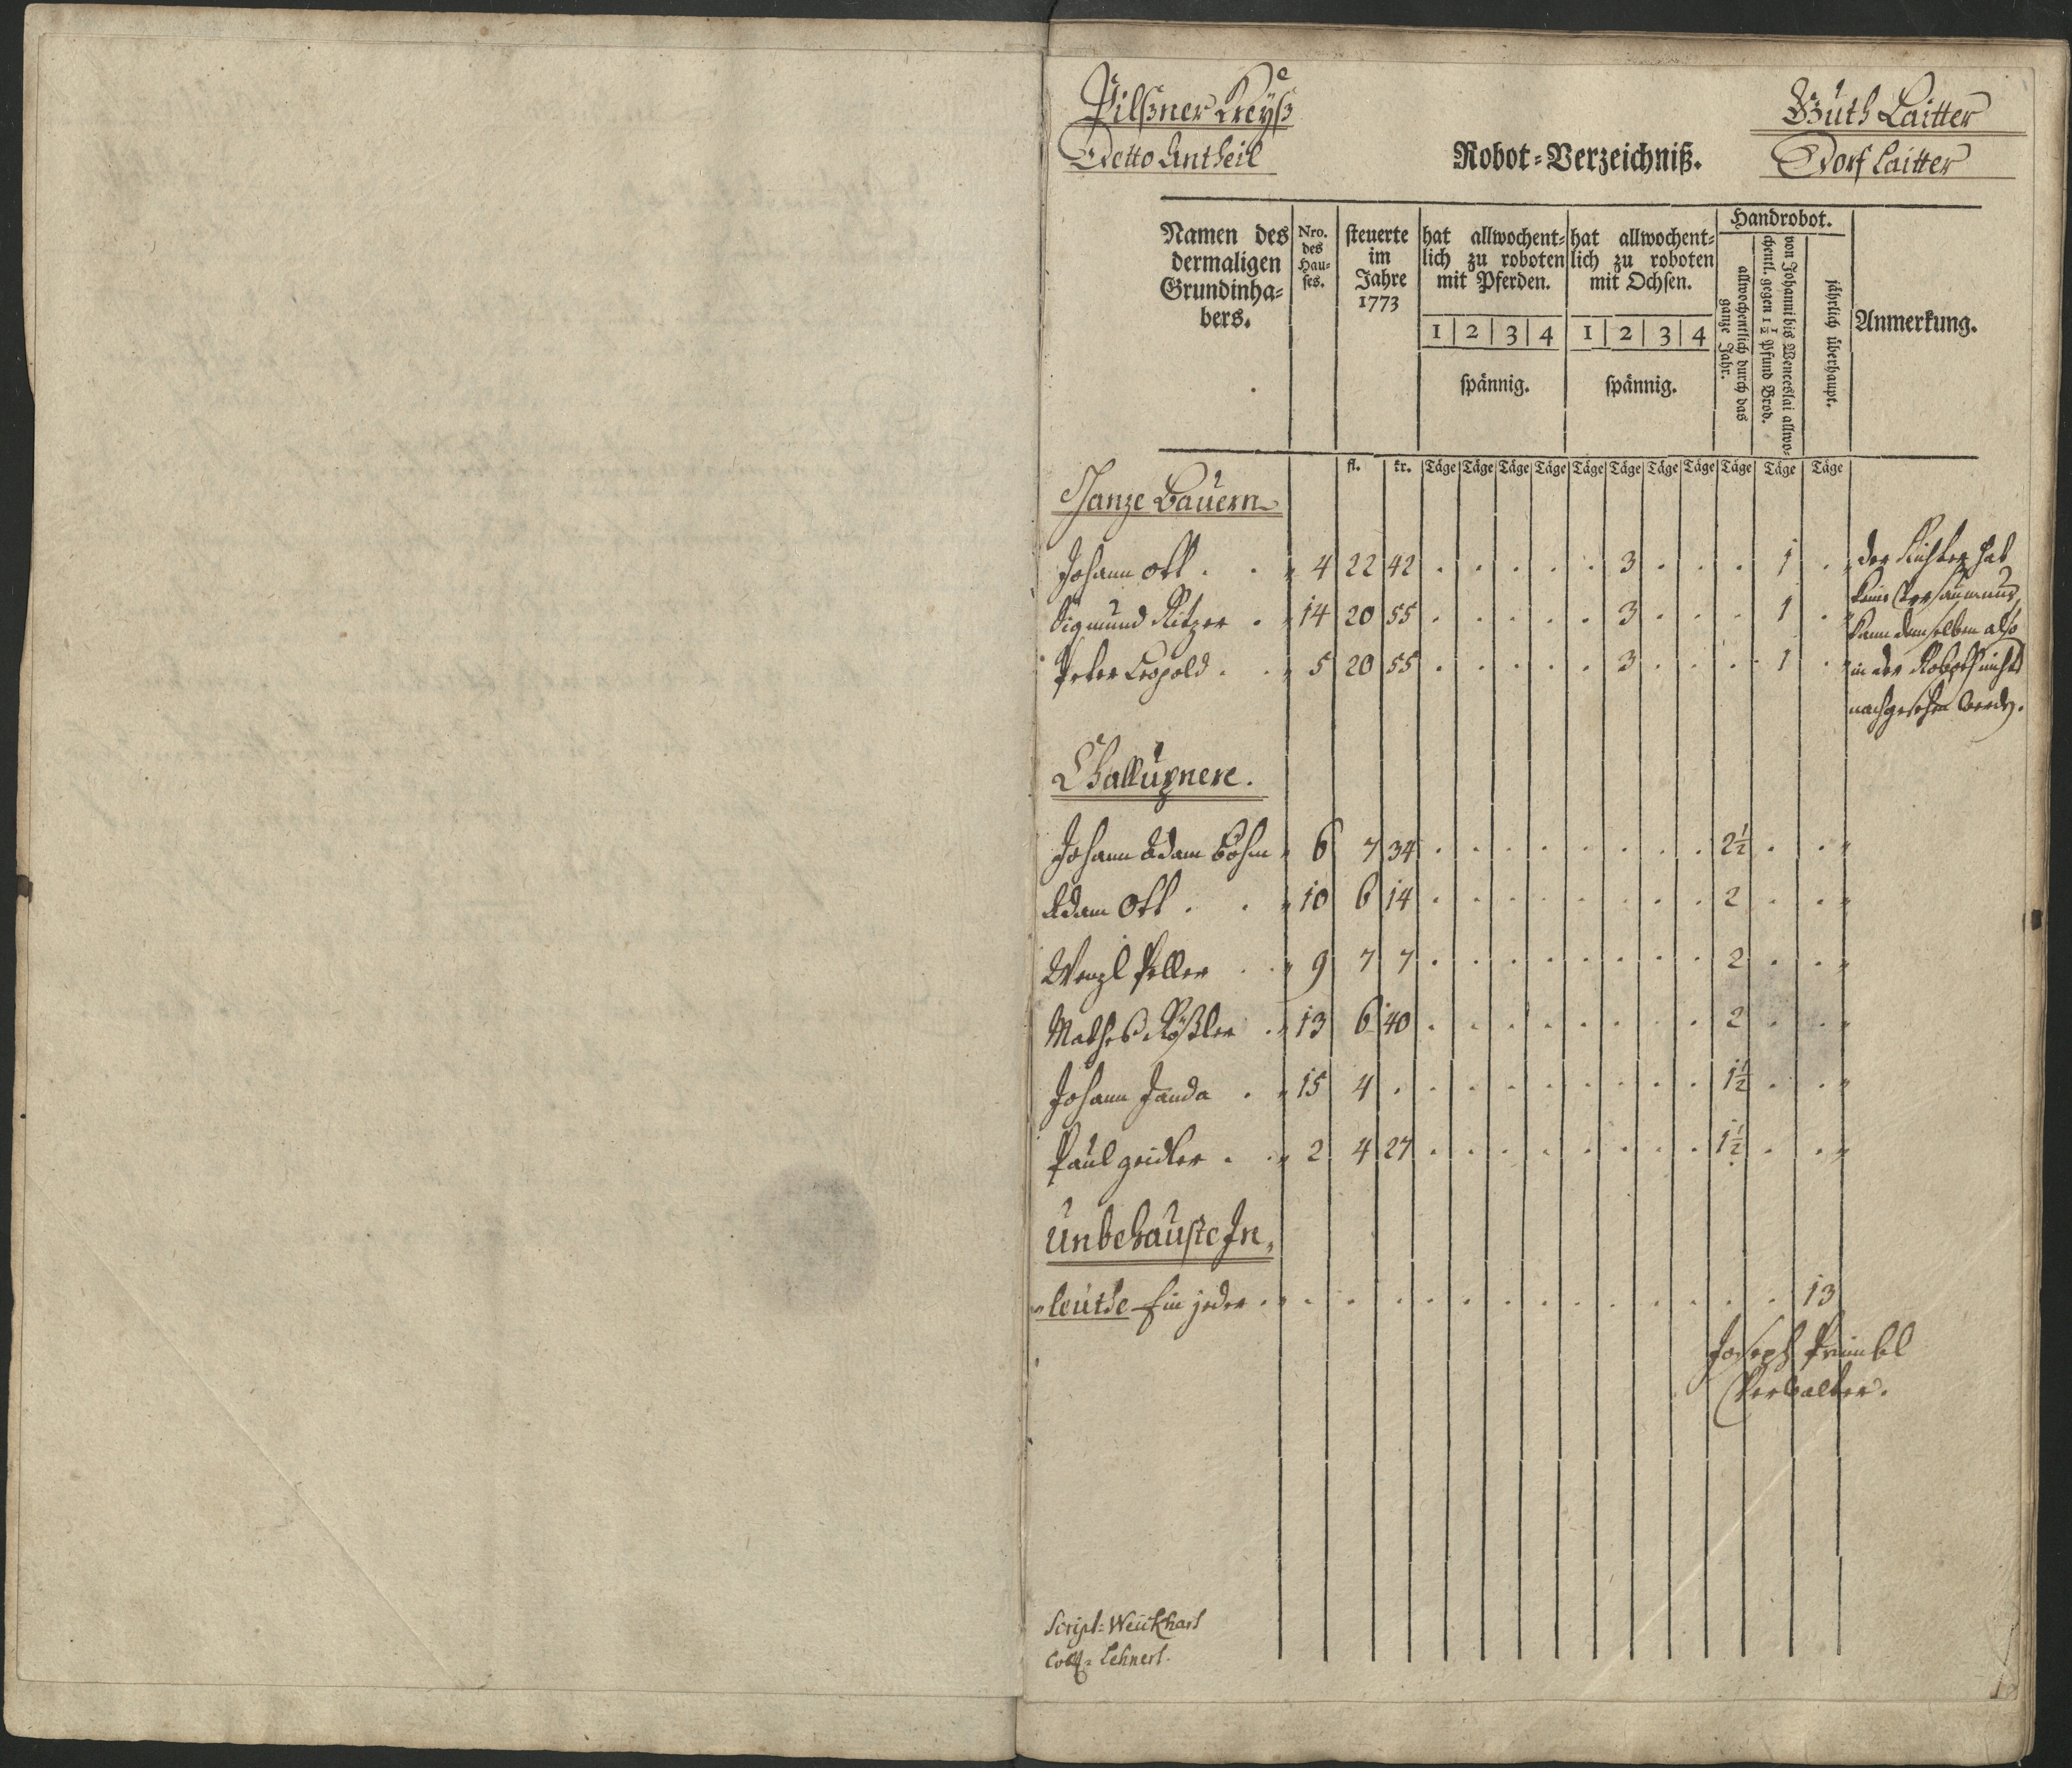 Pilßner Kreyß
Detto Antheil
Guth Laitter
Dorf Laitter
Robot-Verzeichniß.
Namen des dermaligen Grundinhabers.
Nro. des Hauses.
steuerte im Jahre 1773
hat allwochentlich zu roboten mit Pferden.
1 | 2 | 3 | 4
spännig.
hat allwochentlich zu roboten mit Ochsen.
1 | 2 | 3 | 4
spännig.
Handrobot.
allwochentlich durch das ganze Jahr.
von Johanni bis Wenceslai allwochentl. gegen 1 1/2 Pfund Brod.
jährlich überhaupt.
Anmerkung.
fl. kr. Täge Täge Täge Täge Täge Täge Täge Täge Täge Täge Täge
Ganze Bauern
Johann Ott . . 4 22 42 . . . . . 3 . . . 1 .
Sigmund Ritzer . 14 20 55 . . . . . 3 . . . 1 .
Peter Leopold . . 5 20 55 . . . . . 3 . . . 1 .
der Richter hat
keine Versaumnus,
kann demselben also
in der Roboth nichts
nachgesehen werden.
Challupnere.
Johann Adam Böhm 6 7 34 . . . . . . . . 2 1/2 . .
Adam Ott . . 10 6 14 . . . . . . . . 2 . .
Wenzl Peller . . 9 7 7 . . . . . . . . 2 . .
Mathes Rößler . 13 6 40 . . . . . . . . 2 . .
Johann Janda . 15 4 . . . . . . . . . 1 1/2 . .
Paul Zeidler . . 2 4 27 . . . . . . . . 1 1/2 . .
Unbehauste In,
leuthe Ein jeder . . . . . . . . . . . . . . 13
Joseph
Verwalter.
Script: Weickhart
Coll: Lehnert.